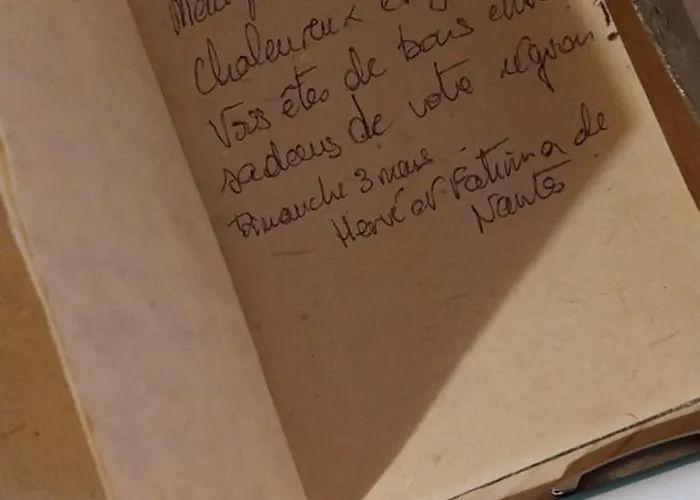 chaleureux et
Vous êtes de bons
sadeurs de votre région !
Dimanche 3 mars.
Hervé et Fatima de
Nantes